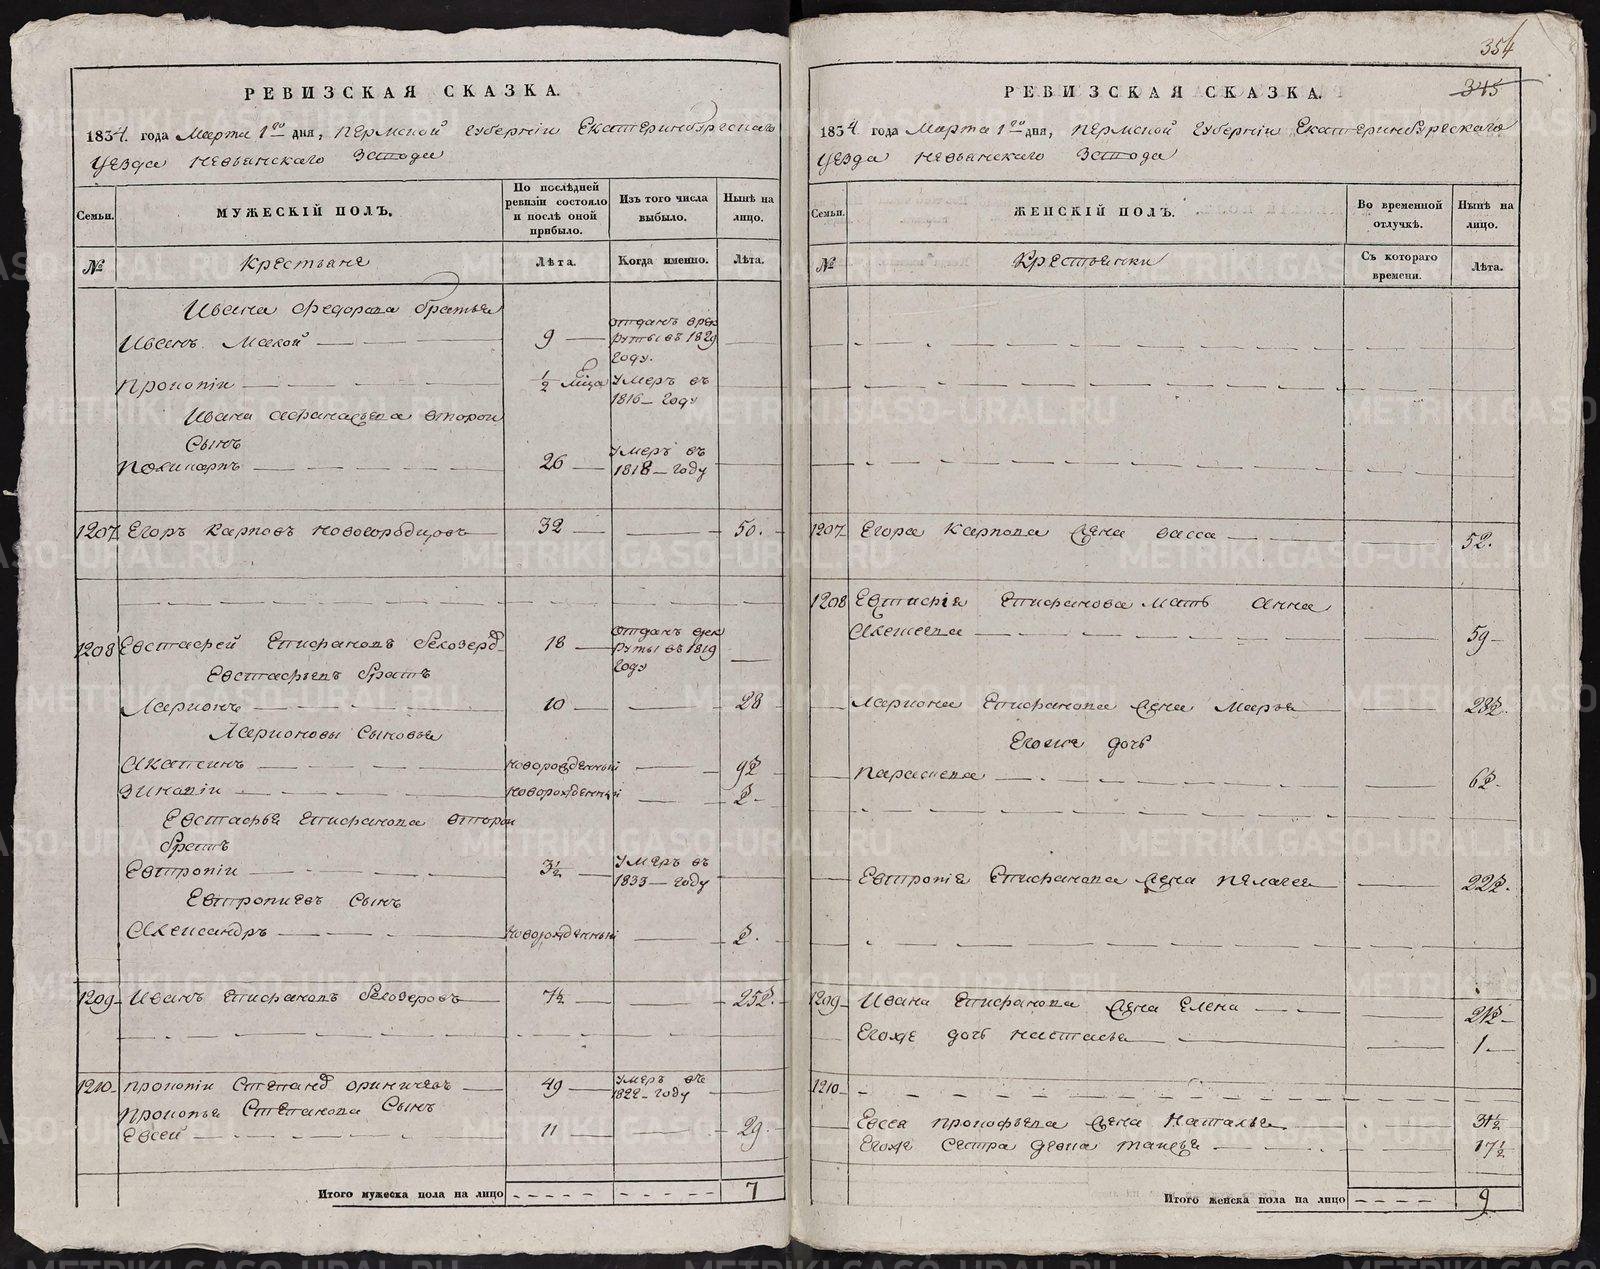 354
345
РЕВИЗСКАЯ СКАЗКА.
1834. года Марта 1го дня, Пермской Губернiи Екатеринбургскаго
уезда невьянскаго Завода
Семьи.
МУЖЕСКIЙ ПОЛЪ.
По послѣдней ревизiи состояло и послѣ оной прибыло.
Изъ того числа выбыло.
Нынѣ на лицо.
№
Крестьяне
Лѣта.
Когда именно.
Лѣта.
Ивана Федорова братья
Иванъ Малой 9 отданъ врек
руты въ 1829
году.
Прокопiи 1/2 Умеръ въ
1816 году
Ивана Афанасьева второй
Сынъ
Поликарпъ 26 Умеръ въ
1818 году
1207 Егоръ Карповъ 32 50.
1208 Евстафей Епифановъ белозеров 18 Отданъ врек
руты въ 1819
году
Евстафьевъ братъ
Ларионъ 10 28
Ларионовы Сыновья
новорожденный 9½
Зиновiи новорожденный ½
Евстафья Епифанова второй
братъ
Евтропiи 3½ Умеръ въ
1833 году
Евтропиевъ Сынъ
Александръ новорожденный ½.
1209 Иванъ Епифановъ белозеровъ 7½ 25½.
1210 прокопiи Степановъ 49 Умеръ въ
1822 году
прокопья Степанова Сынъ
Евсей 11 29.
Итого мужеска пола на лицо 7
РЕВИЗСКАЯ СКАЗКА.
1834 года Марта 1го дня, Пермской Губернiи Екатеринбургскаго
уезда невьянскаго Завода
Семьи.
ЖЕНСКIЙ ПОЛЪ.
Во временной отлучкѣ.
Нынѣ на лицо.
№
Крестьянки
Съ котораго времени.
Лѣта.
1207 Егора Карпова жена васса 52.
1208 Епифанова Мать анна
Алексеева 59
Лариона Епифанова жена Марья 28½.
Егоже дочь
парасковья 6½.
Евтропiя Епифанова жена пелагея 22½.
1209 Ивана Епифанова жена Елена 21½
Егоже дочь настасья 1.
1210
Евсея прокофьева жена Наталья 31½
Егоже Сестра 17½
Итого женска пола на лицо 9
METRIKI.GASO-URAL.RU